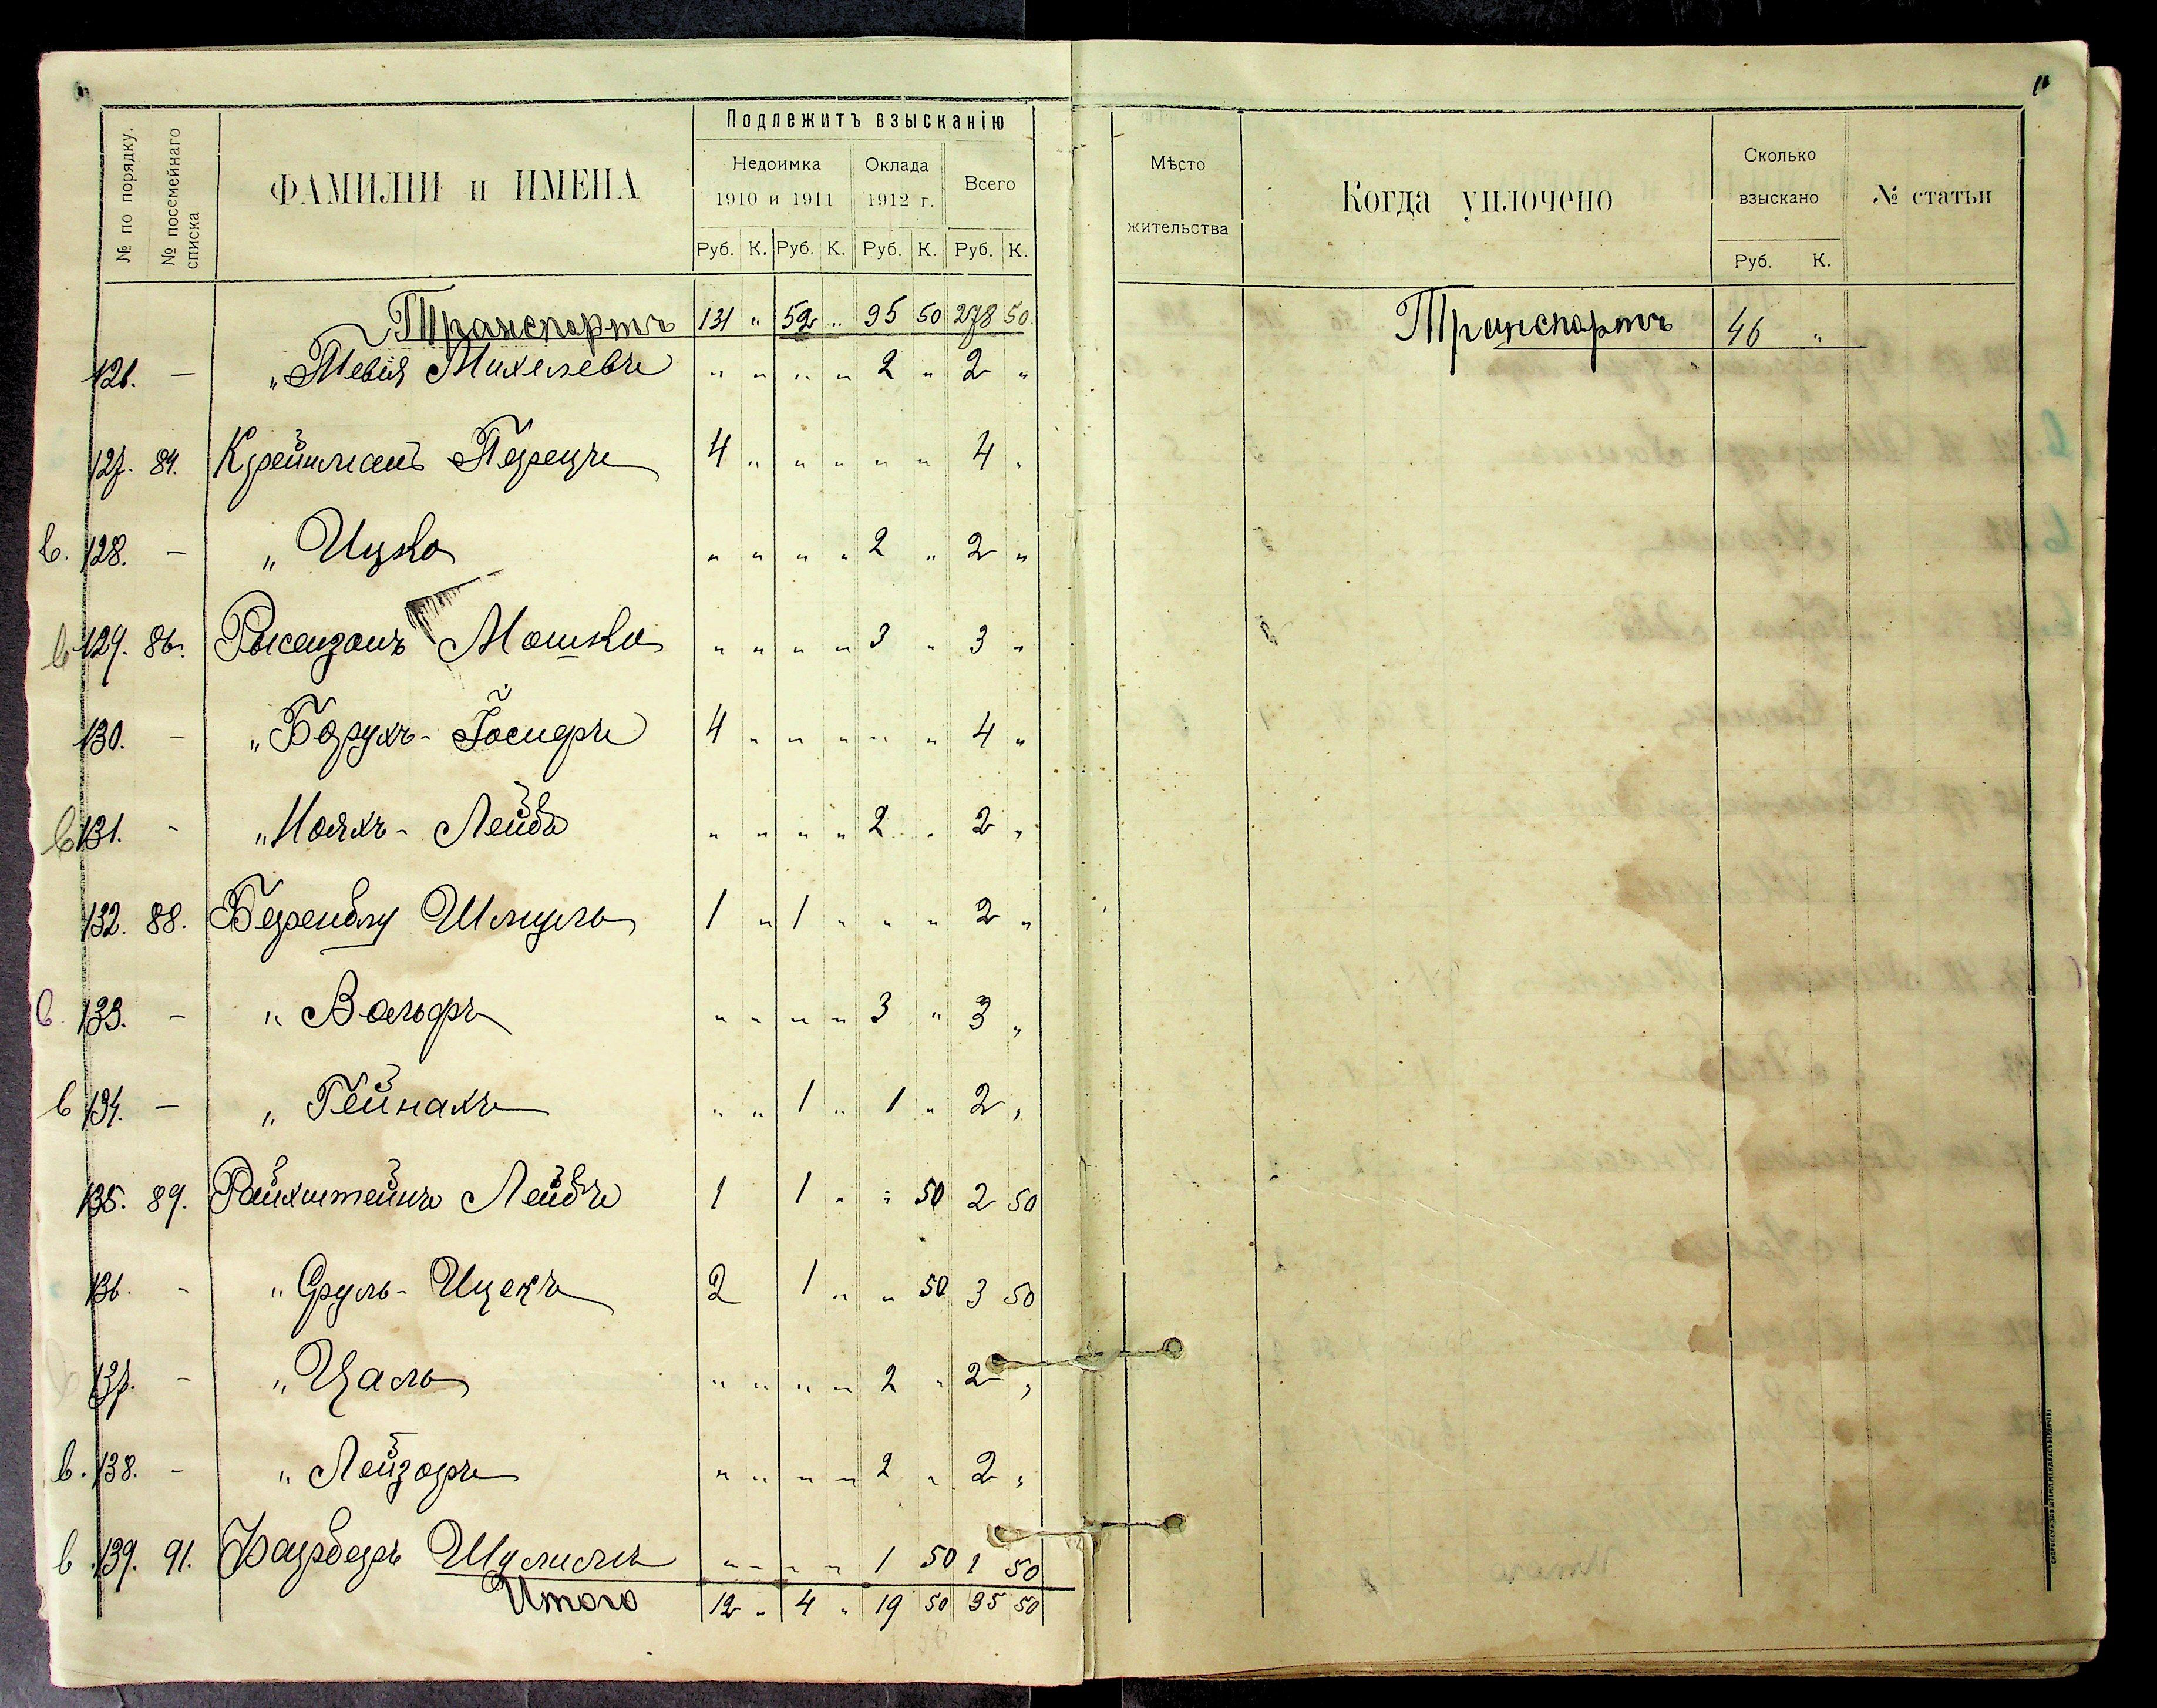 № по порядку.
№ посемейнаго списка
ФАМИЛІИ и ИМЕНА
Подлежитъ взысканію
Недоимка
1910 и 1911
Оклада
1912 г.
Всего
Руб. К. Руб. К. Руб. К. Руб. К.
Транспортъ 131 " 52 " 95 50 278 50
126. — " Тевія Михелевъ " " " " 2 " 2 "
127. 84. Креймланъ Перецъ 4 " " " " " 4 "
в. 128. — " Ицко " " " " 2 " 2 "
в 129. 86. Мошко " " " " 3 " 3 "
130. — " Борухъ-Іосифъ 4 " " " " " 4 "
в 131. - " Нояхъ-Лейбъ " " " " 2 " 2 "
132. 88. Беренблу Шмуль 1 " 1 " " " 2 "
в. 133. - " Вольфъ " " " " 3 " 3 "
в 134. — " Гейнахъ " " 1 " 1 " 2 "
135. 89. Райхштейнъ Лейбъ 1 1 " " 50 2 50
136. - " Сруль-Ицекъ 2 1 " " 50 3 50
137. - " Цаль " " " " 2 " 2 "
в. 138. - " Лейзоръ " " " " 2 " 2 "
в 139. 91. Фарберъ Шулимъ " " " " 1 50 1 50
Итого 12 " 4 " 19 50 35 50
Мѣсто
жительства
Когда уплочено
Сколько
взыскано
Руб. К.
№ статьи
Транспортъ 46 "